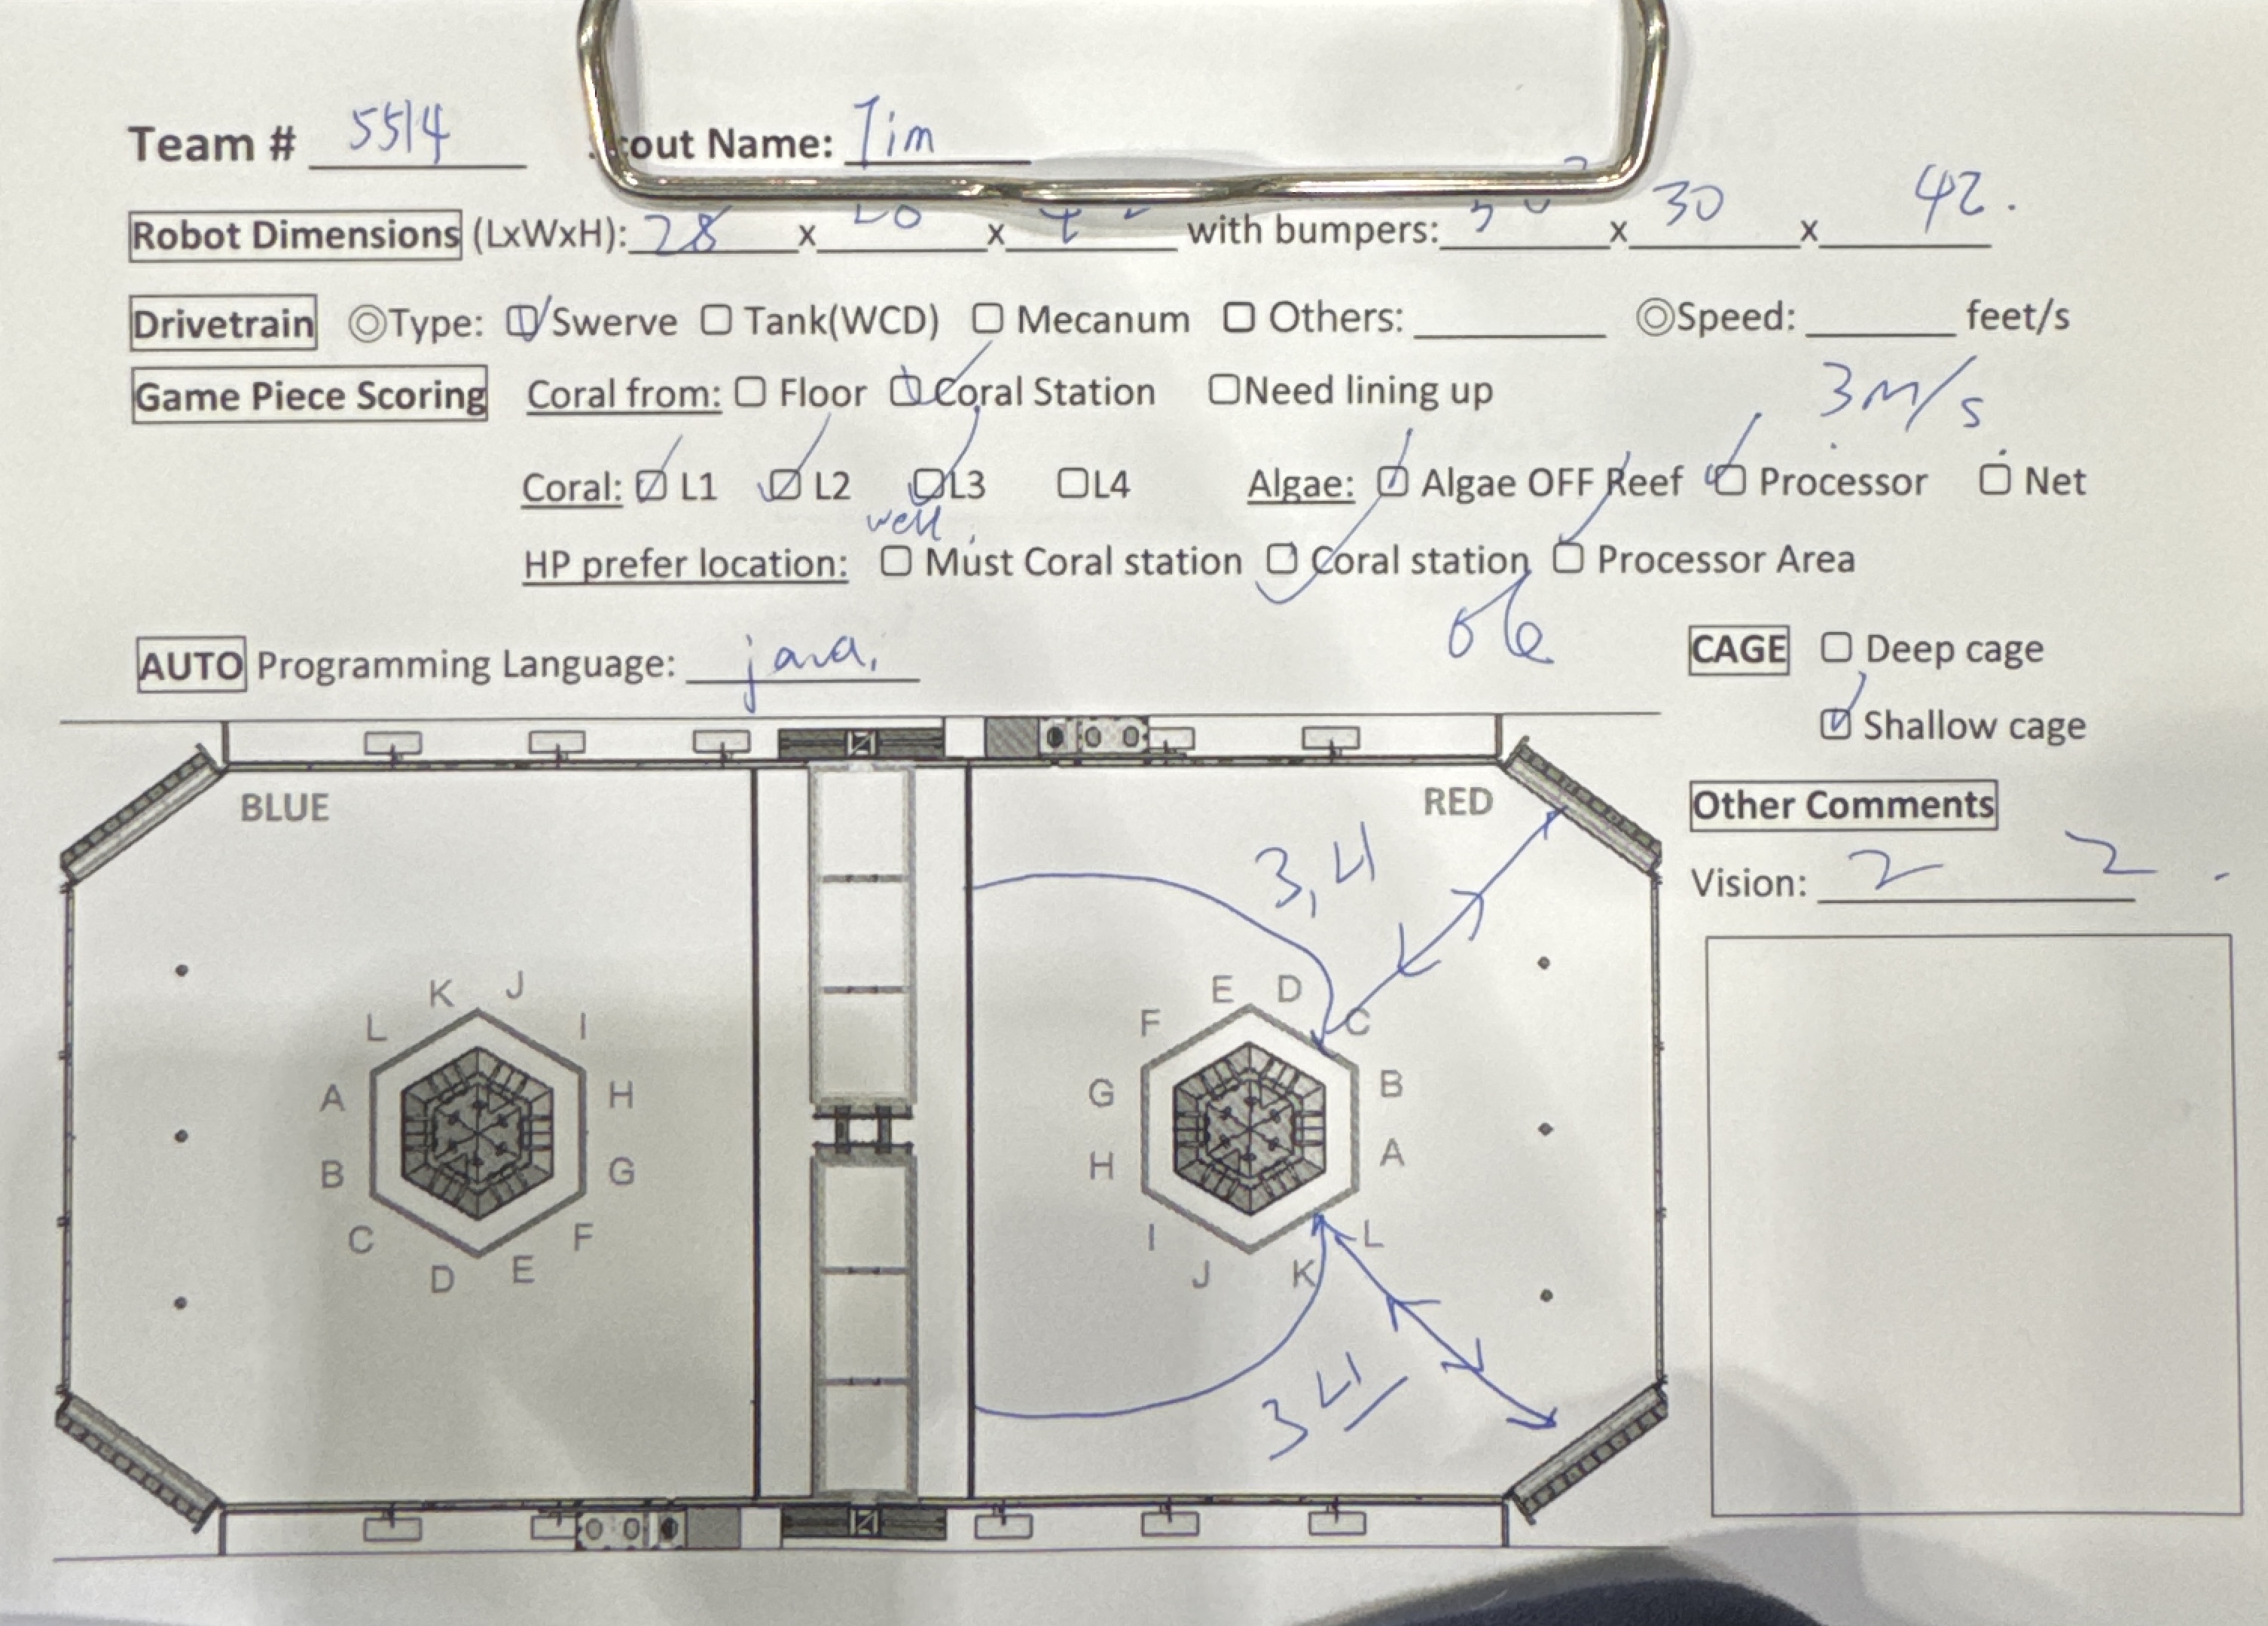 Team # 5514 Scout Name: Tim
Robot Dimensions (LxWxH): 28 x x with bumpers: x 30 x 42.
Drivetrain ◎Type: ☑ Swerve ☐ Tank(WCD) ☐ Mecanum ☐ Others: ◎Speed: feet/s
3m/s
Game Piece Scoring Coral from: ☐ Floor ☑ Coral Station ☐ Need lining up
Coral: ☑ L1 ☑ L2 ☑ L3 ☐ L4 Algae: ☑ Algae OFF Reef ☑ Processor ☐ Net
well
HP prefer location: ☐ Must Coral station ☑ Coral station ☑ Processor Area
AUTO Programming Language: java.
CAGE ☐ Deep cage
☑ Shallow cage
BLUE
RED
3, L1
K J
L I
A H
B G
C F
D E
E D
F C
G B
H A
I L
J K
3 L1
Other Comments
Vision: 2 2.